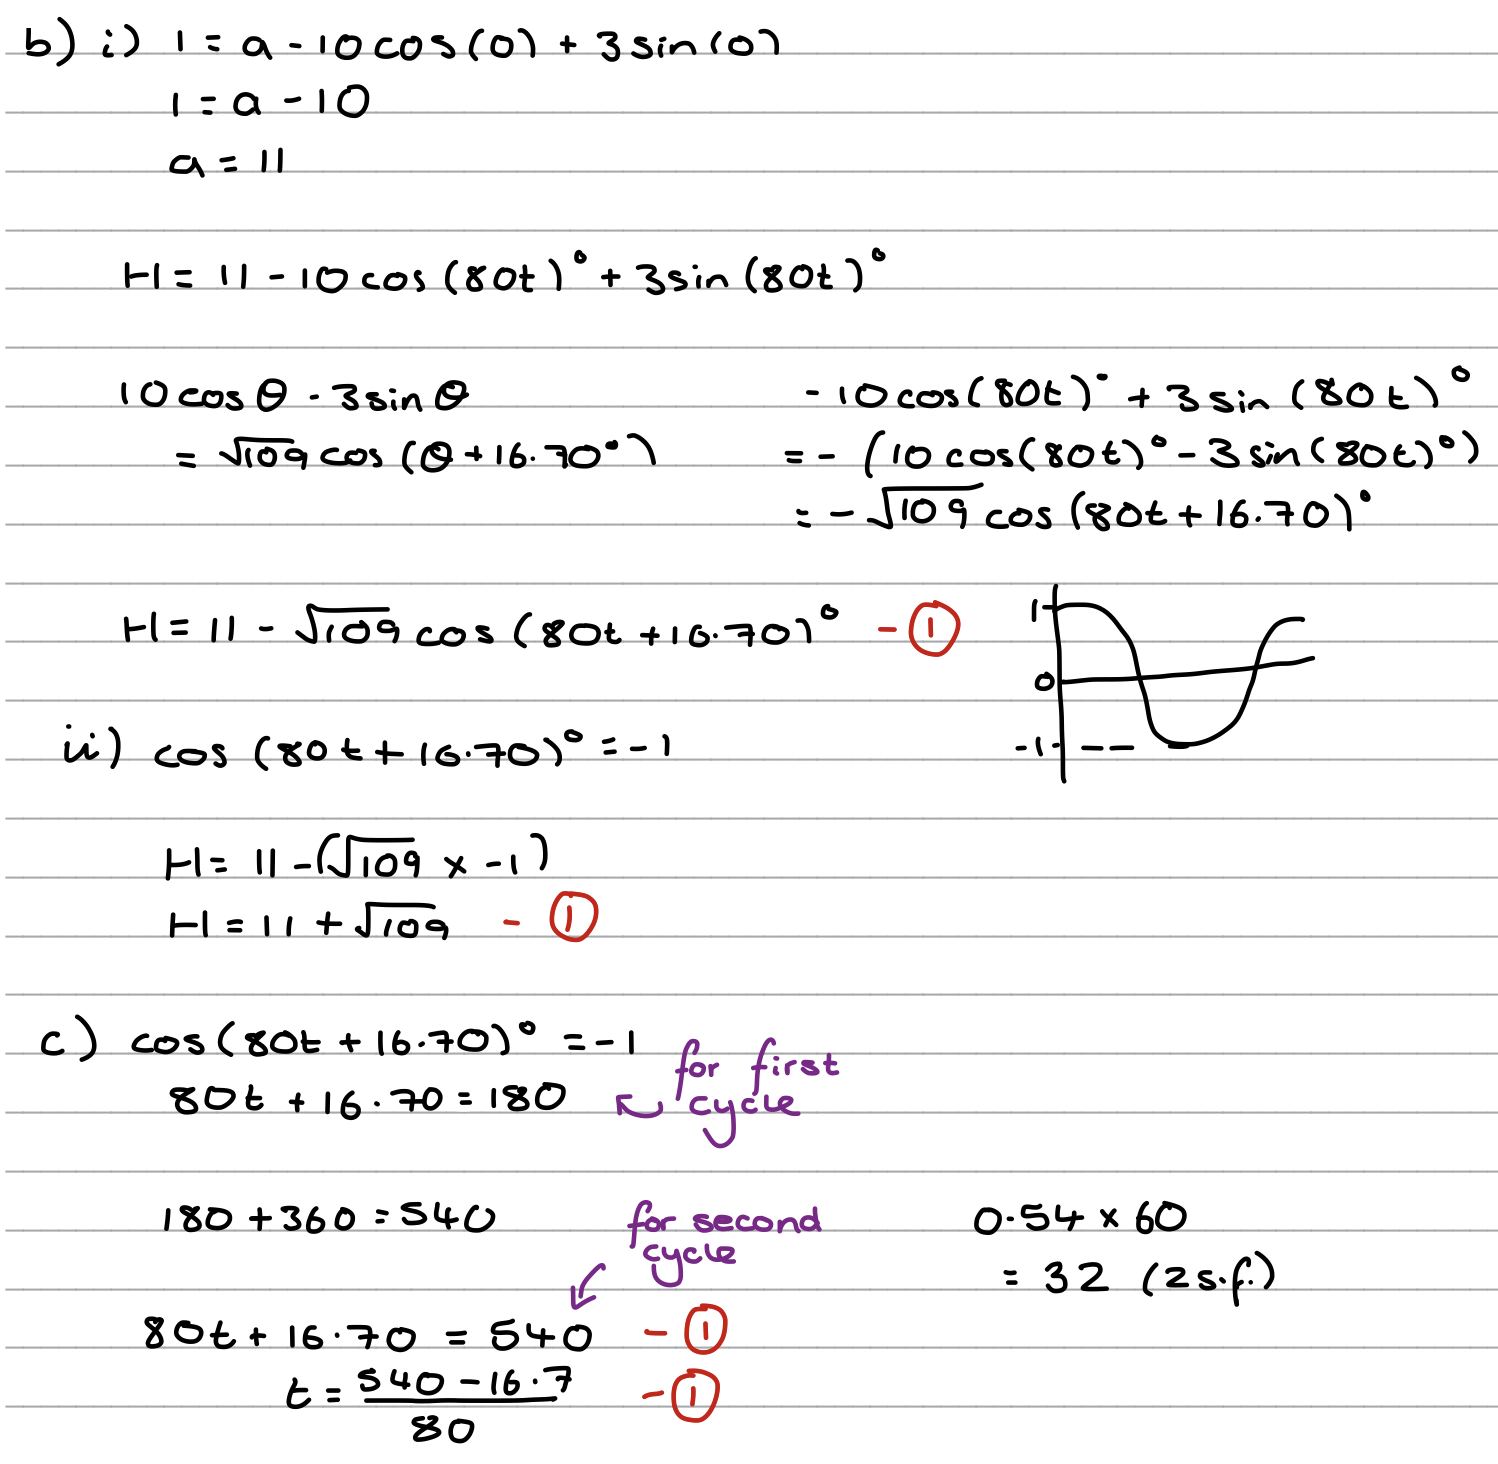 b) i) 1 = a - 10cos(0) + 3sin(0)
1 = a - 10
a = 11
H = 11 - 10cos(80t)° + 3sin(80t)°
10cosθ - 3sinθ
= √109 cos(θ + 16.70°)
-10cos(80t)° + 3sin(80t)°
= -(10cos(80t)° - 3sin(80t)°)
= -√109 cos(80t + 16.70)°
H = 11 - √109 cos(80t + 16.70)° - ①
1
0
-1
ii) cos(80t + 16.70)° = -1
H = 11 - (√109 × -1)
H = 11 + √109 - ①
c) cos(80t + 16.70)° = -1
80t + 16.70 = 180
for first
cycle
180 + 360 = 540
for second
cycle
80t + 16.70 = 540 - ①
t = (540 - 16.7)/80 - ①
0.54 × 60
= 32 (2s.f.)